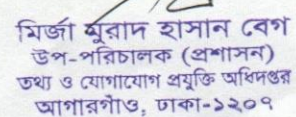 মির্জা মুরাদ হাসান বেগ
উপ-পরিচালক (প্রশাসন)
তথ্য ও যোগাযোগ প্রযুক্তি অধিদপ্তর
আগারগাঁও, ঢাকা-১২০৭